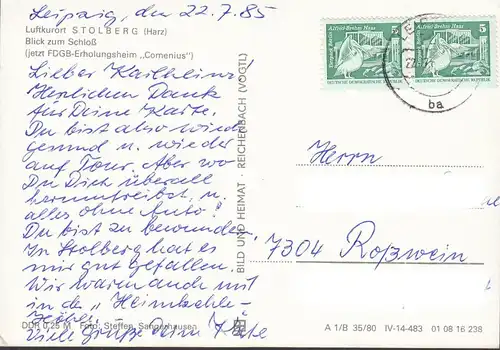 Leipzig, den 22.7.85
Luftkurort STOLBERG (Harz)
Blick zum Schloß
(jetzt FDGB-Erholungsheim „Comenius")
Lieber Karlheinz!
Herzlichen Dank
für Deine Karte.
Du bist also wieder
gesund u. wieder
auf Tour. Aber wo
Du Dich überall
herumtreibst, u.
alles ohne Auto!
Du bist zu bewundern.
In Stolberg hat es
mir gut gefallen.
Wir waren auch mit
in der „Heimkehle-
Höhle".
Viele Grüße Deine Käte
DDR 0,25 M Foto: Steffen, Sangerhausen
BILD UND HEIMAT · REICHENBACH (VOGTL)
Alfred-Brehm-Haus 5
Tierpark Berlin
DEUTSCHE DEMOKRATISCHE REPUBLIK
Alfred-Brehm-Haus 5
DEUTSCHE DEMOKRATISCHE REPUBLIK
ba
Herrn
7304 Roßwein
A 1/B 35/80 IV-14-483 01 08 16 238